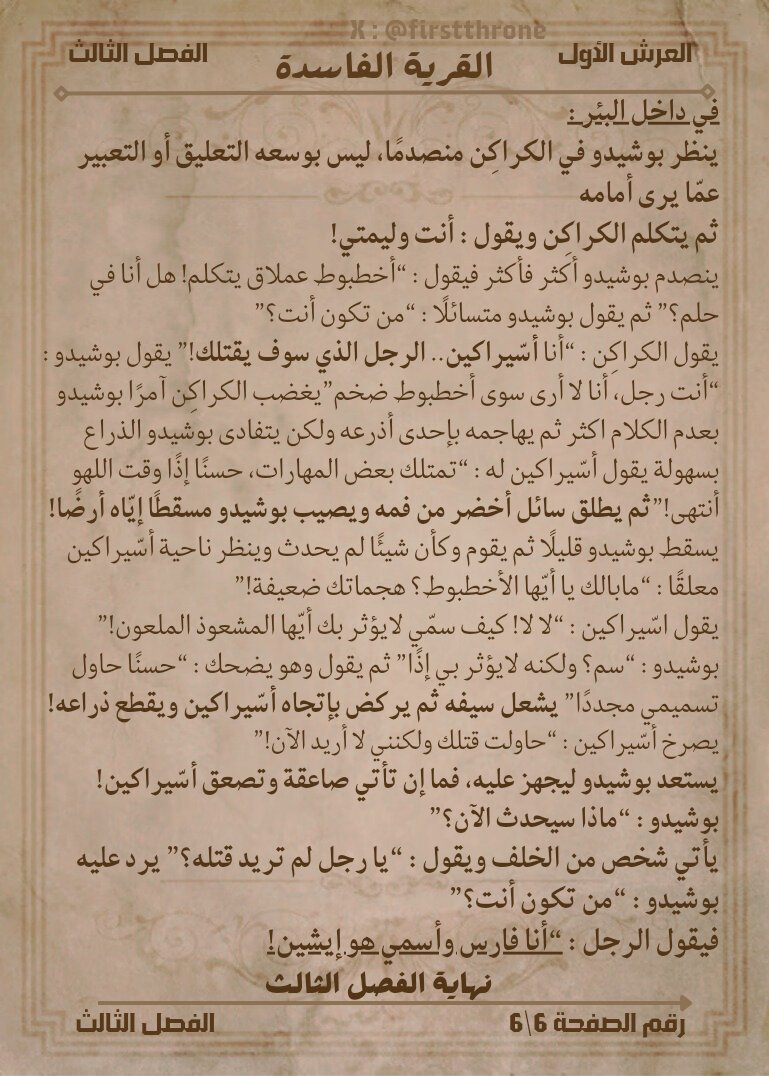 X : @firstthrone
العرش الأول
القرية الفاسدة
الفصل الثالث
في داخل البئر :
ينظر بوشيدو في الكراكِن منصدمًا، ليس بوسعه التعليق أو التعبير
عمّا يرى أمامه
ثم يتكلم الكراكِن ويقول : أنت وليمتي!
ينصدم بوشيدو أكثر فأكثر فيقول : “أخطبوط عملاق يتكلم! هل أنا في
حلم؟” ثم يقول بوشيدو متسائلًا : “من تكون أنت؟”
يقول الكراكِن : “أنا أسّيراكين.. الرجل الذي سوف يقتلك!” يقول بوشيدو :
“أنت رجل، أنا لا أرى سوى أخطبوط ضخم”يغضب الكراكِن آمرًا بوشيدو
بعدم الكلام اكثر ثم يهاجمه بإحدى أذرعه ولكن يتفادى بوشيدو الذراع
بسهولة يقول أسّيراكين له : “تمتلك بعض المهارات، حسنًا إذًا وقت اللهو
أنتهى!”ثم يطلق سائل أخضر من فمه ويصيب بوشيدو مسقطًا إيّاه أرضًا!
يسقط بوشيدو قليلًا ثم يقوم وكأن شيئًا لم يحدث وينظر ناحية أسّيراكين
معلقًا : “مابالك يا أيّها الأخطبوط؟ هجماتك ضعيفة!”
يقول اسّيراكين : “لا لا! كيف سمّي لايؤثر بك أيّها المشعوذ الملعون!”
بوشيدو : “سم؟ ولكنه لايؤثر بي إذًا” ثم يقول وهو يضحك : “حسنًا حاول
تسميمي مجددًا” يشعل سيفه ثم يركض بإتجاه أسّيراكين ويقطع ذراعه!
يصرخ أسّيراكين : “حاولت قتلك ولكنني لا أريد الآن!”
يستعد بوشيدو ليجهز عليه، فما إن تأتي صاعقة وتصعق أسّيراكين!
بوشيدو : “ماذا سيحدث الآن؟”
يأتي شخص من الخلف ويقول : “يا رجل لم تريد قتله؟” يرد عليه
بوشيدو : “من تكون أنت؟”
فيقول الرجل : “أنا فارس وأسمي هو إيشين!
نهاية الفصل الثالث
رقم الصفحة 6\6
الفصل الثالث